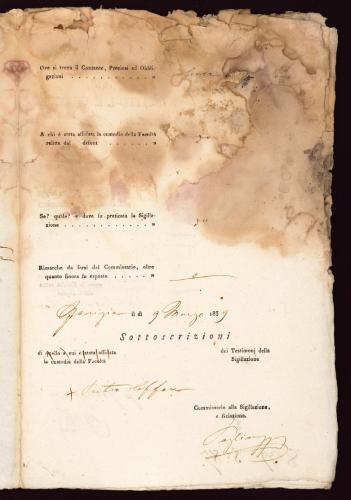 Ove si trova il Contante, Preziosi ed Obbli-
gazioni . . . . . . . . . . . „
A chi è stata affidata la custodia della Facoltà
relitta dal defont . . . . . . . . „
Se? quale? e dove fu praticata la Sigilla-
zione . . . . . . . . . . . . „
Rimarche da farsi dal Commissario, oltre
quanto finora fu esposto . . . . . . „
li 9 Marzo 1839
Sottoscrizioni
di quello a cui è stata affidata
la custodia della Facoltà
dei Testimonj della
Sigillazione
+ Pietro
Commissario alla Sigillazione,
e Relazione.